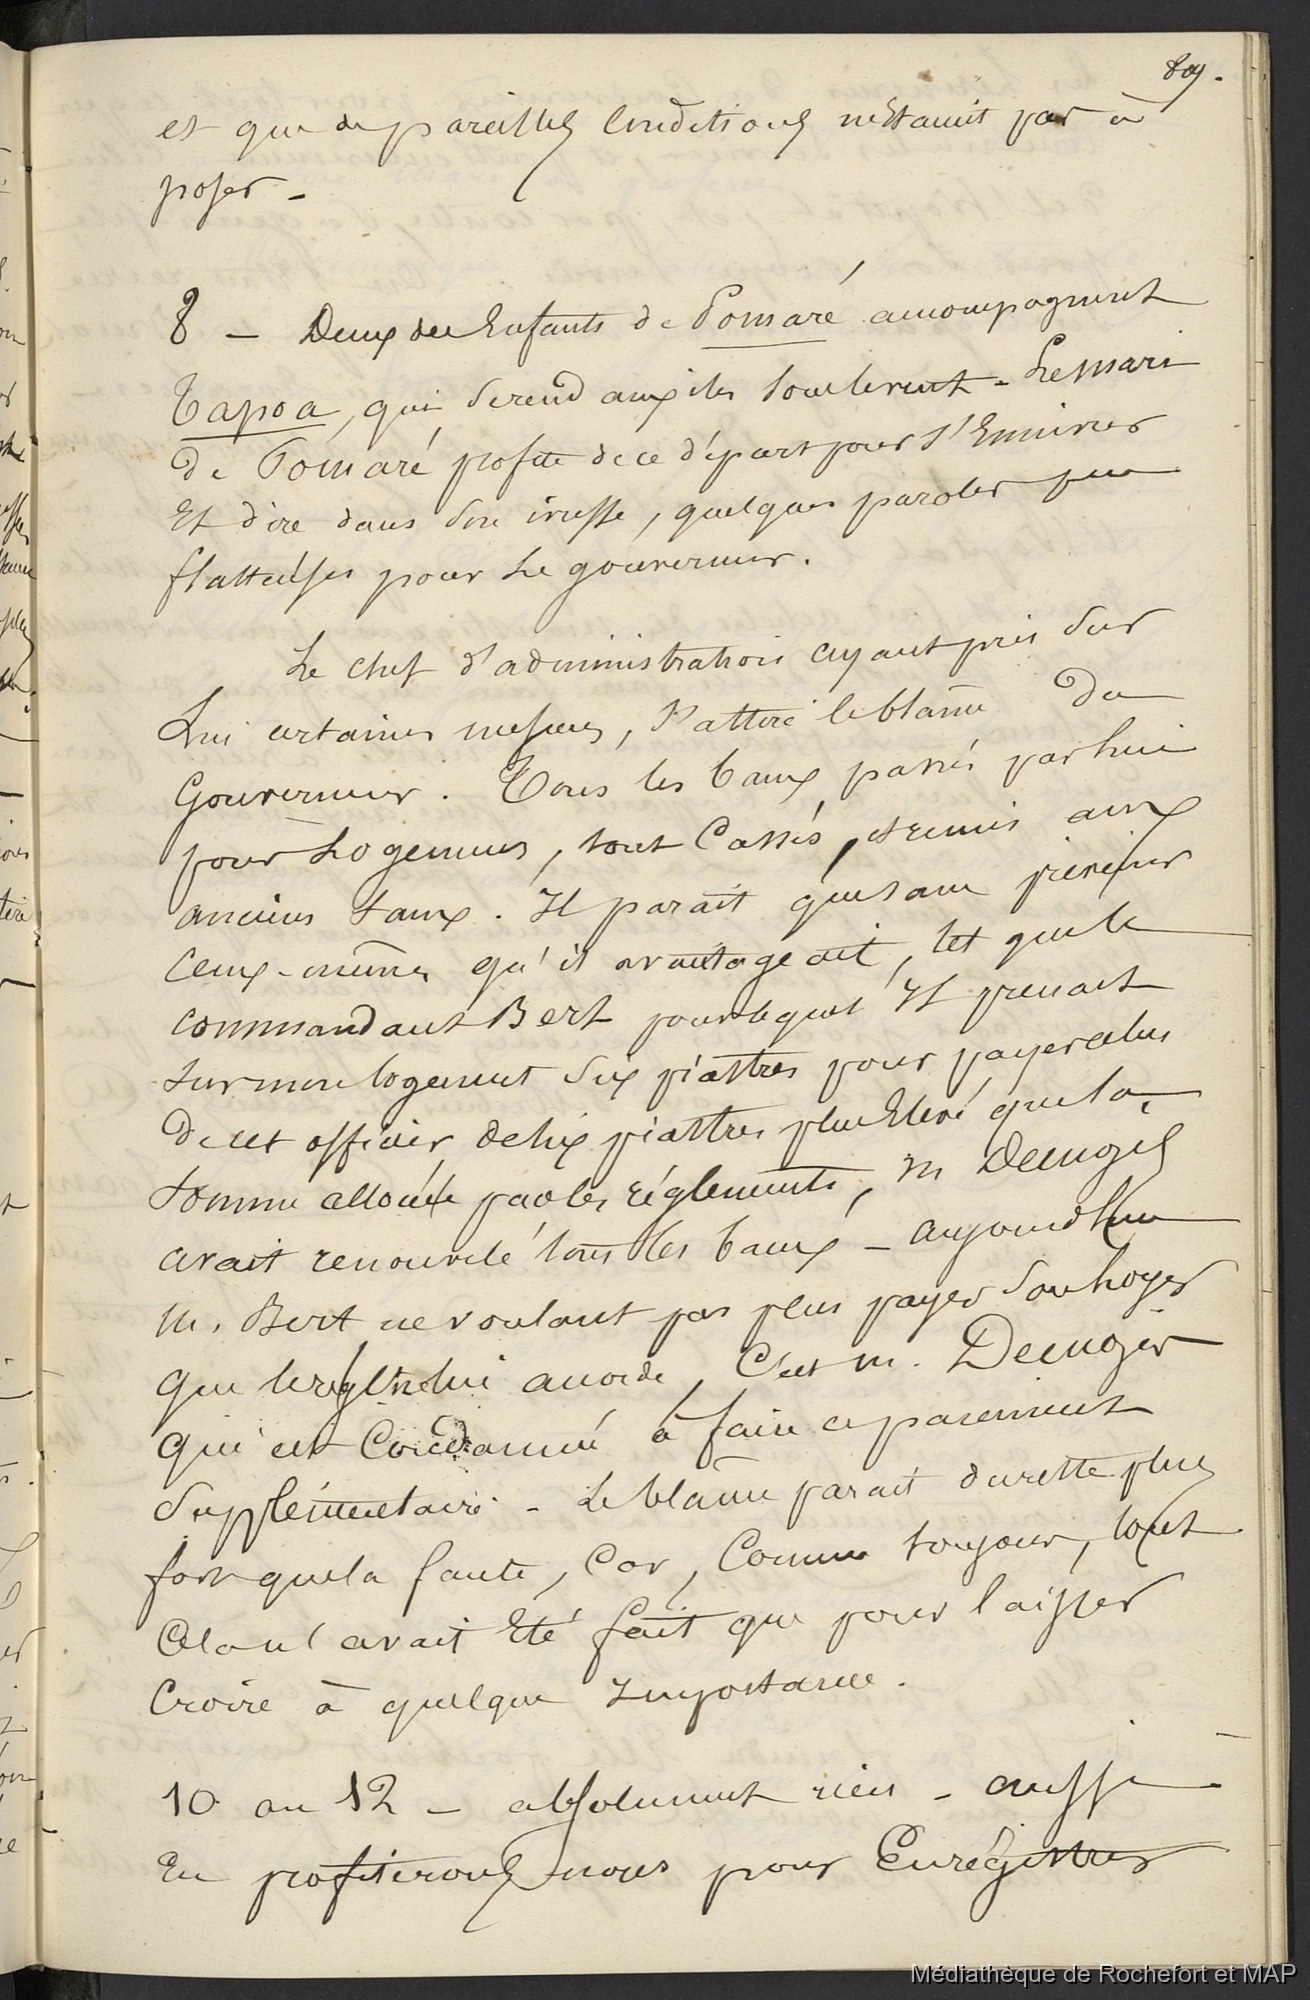 809.
et que de pareilles conditions n'étaient pas à
poser -
8 - Deux des Enfants de Pomaré accompagnent
Tapoa, qui se rend aux iles sous le vent - Le mari
de Pomaré profite de ce départ pour s'Enivrer
Et dire dans son ivresse, quelques paroles peu
flatteuses pour Le gouverneur.
Le chef d'administration ayant pris sur
Lui certaines mesures, s'attire le blâme du
Gouverneur. Tous les baux passés par lui
pour Logements, sont Cassés, et remis aux
anciens taux. Il parait que sans prévenir
Ceux-mêmes qu'il avantageait, tet que le
commandant Bert pour lequel Il prenait
sur mon logement six piastres pour payer celui
de cet officier de six piastres plus Elevé que la
somme allouée par les réglements, M
avait renouvelé tous les baux - aujourd'hui
M. Bert ne voulant pas plus payer son loyer
que le reglt ne lui accorde, C'est M.
qui est Condamné à faire ce paiement
supplémentaire - Le blâme parait du reste plus
fort que la faute, Car, Comme toujours, tout
Cela n'avait Eté fait que pour laisser
Croire à quelque Importance.
10 au 12 - absolument rien - aussi
En profiterons nous pour Enrégistrer
Médiathèque de Rochefort et MAP